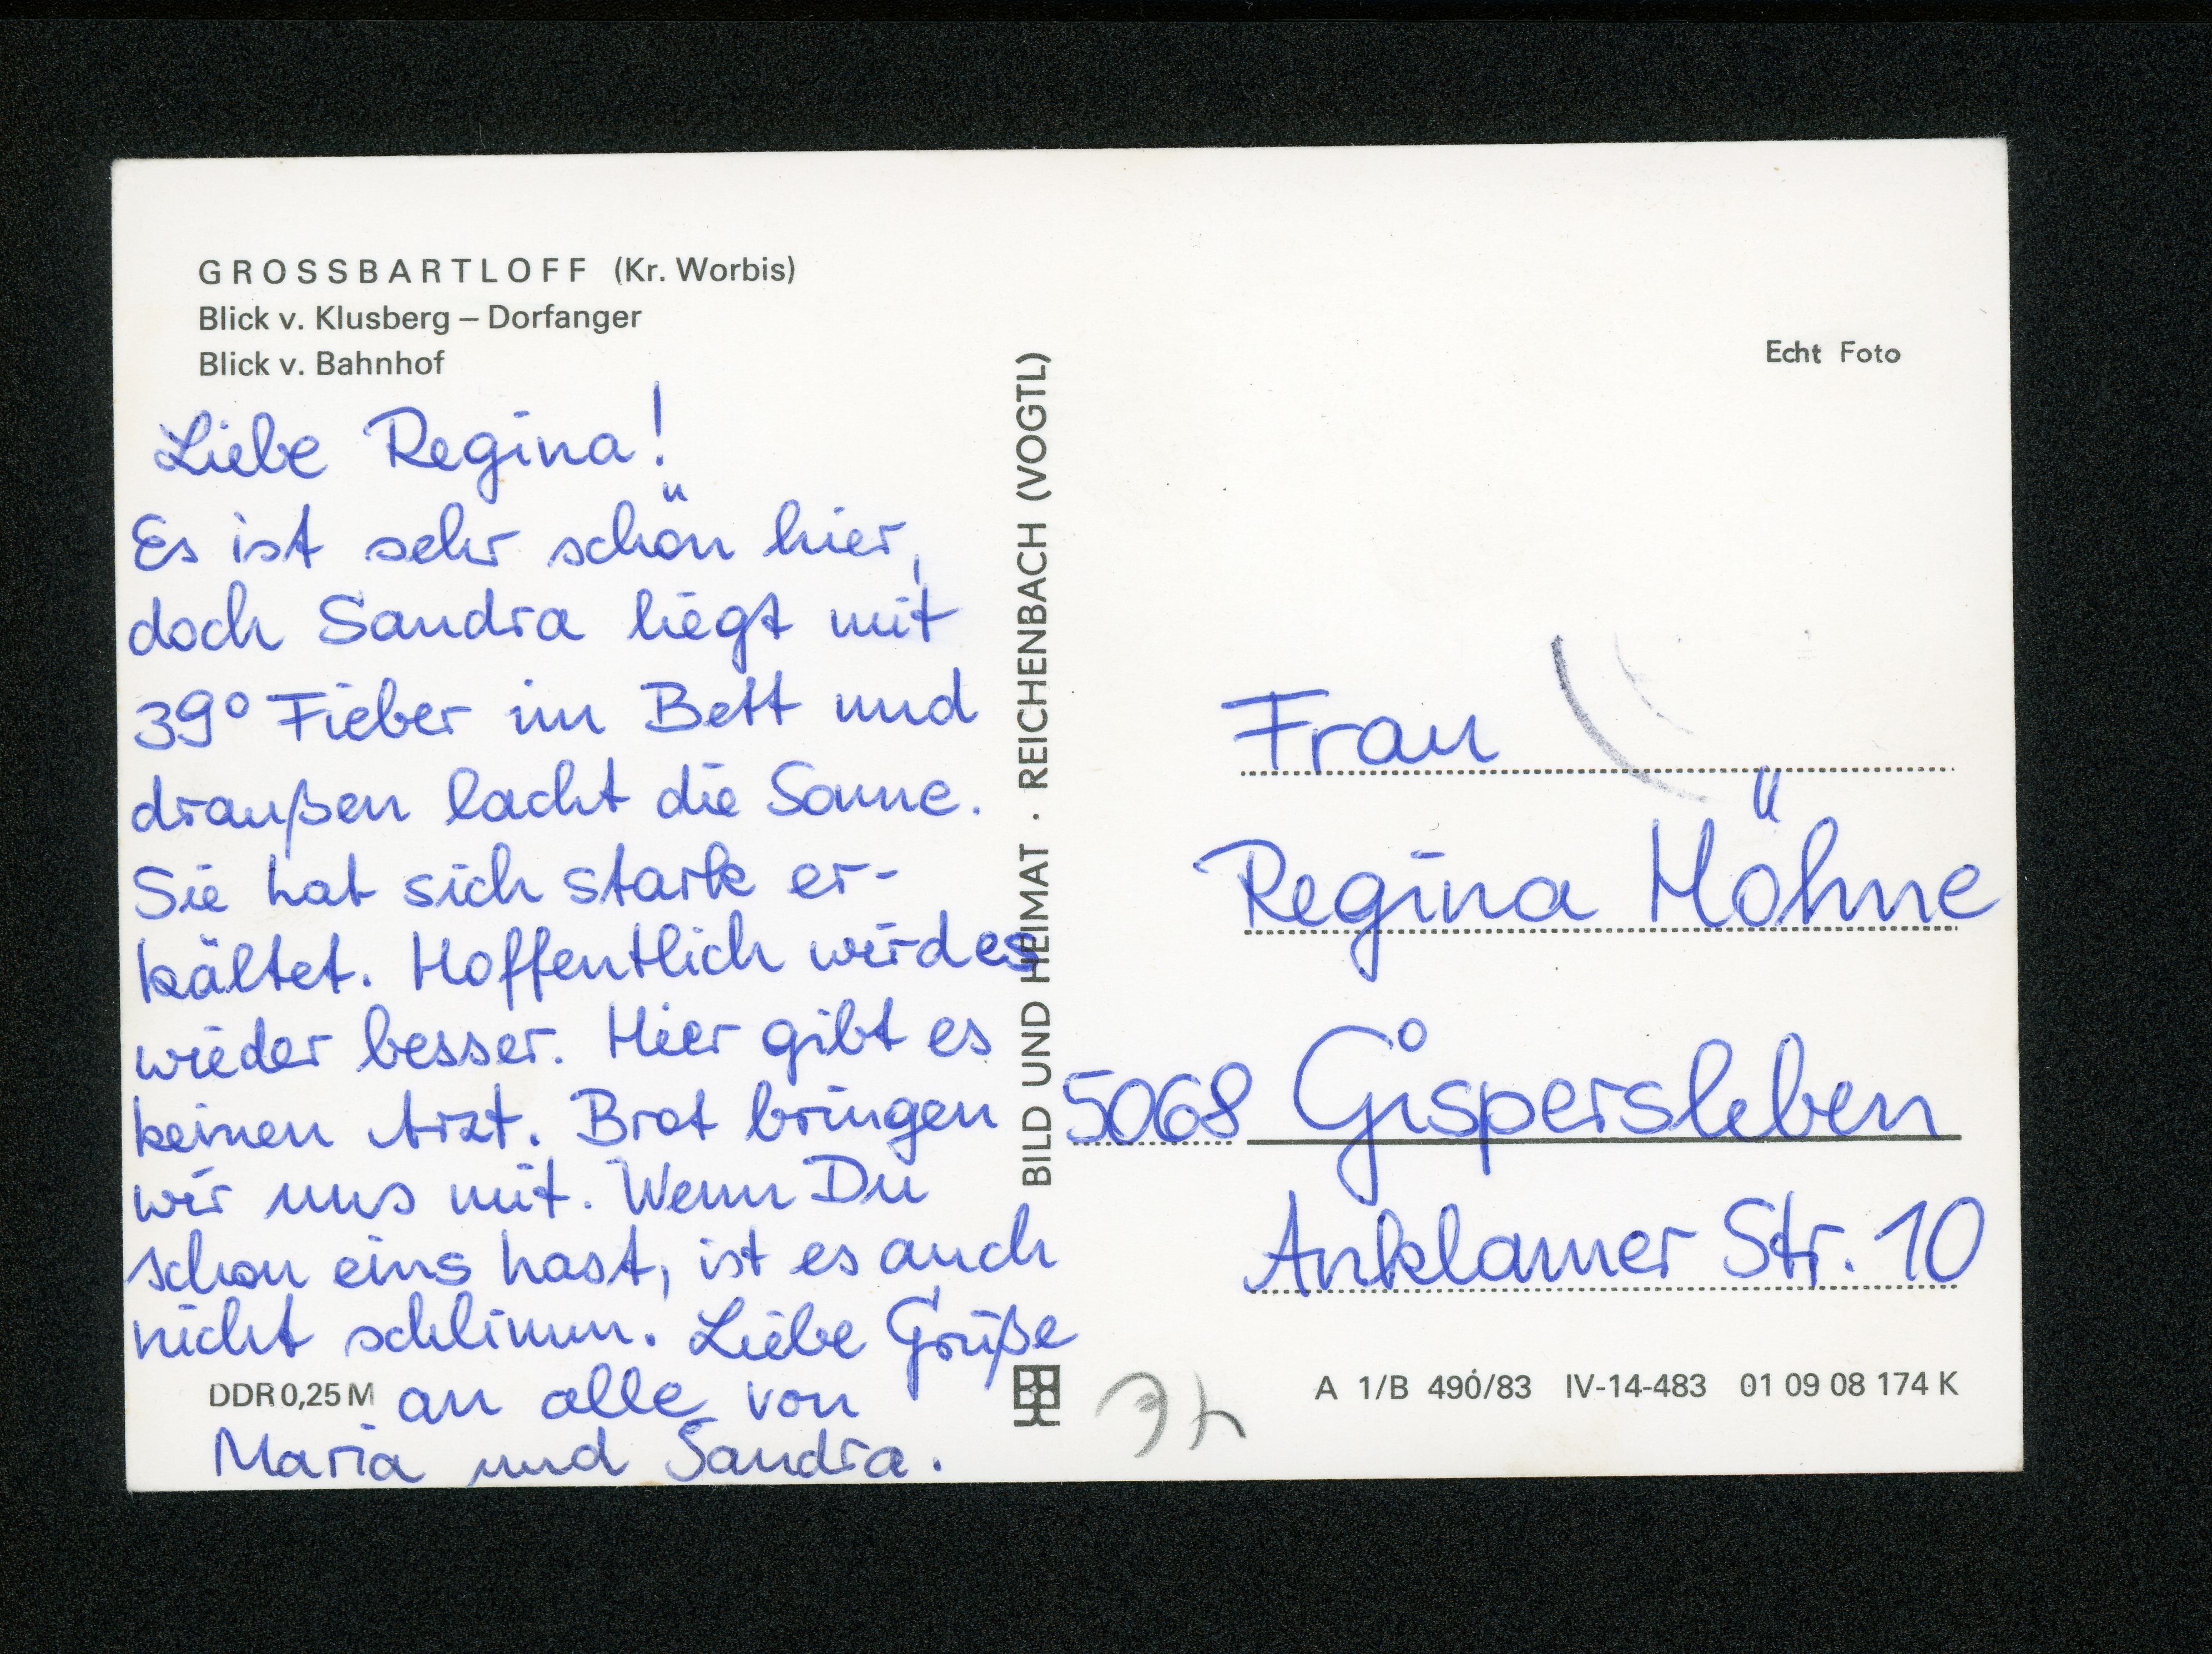 GROSSBARTLOFF (Kr. Worbis)
Blick v. Klusberg – Dorfanger
Blick v. Bahnhof
Liebe Regina!
Es ist sehr schön hier,
doch Sandra liegt mit
39° Fieber im Bett und
draußen lacht die Sonne.
Sie hat sich stark er-
kältet. Hoffentlich wird es
wieder besser. Hier gibt es
keinen Arzt. Brot bringen
wir uns mit. Wenn Du
schon eins hast, ist es auch
nicht schlimm. Liebe Grüße
an alle von
Maria und Sandra.
DDR 0,25 M
BILD UND HEIMAT · REICHENBACH (VOGTL)
Echt Foto
Frau
Regina Höhne
5068 Gispersleben
Anklamer Str. 10
A 1/B 490/83 IV-14-483 01 09 08 174 K